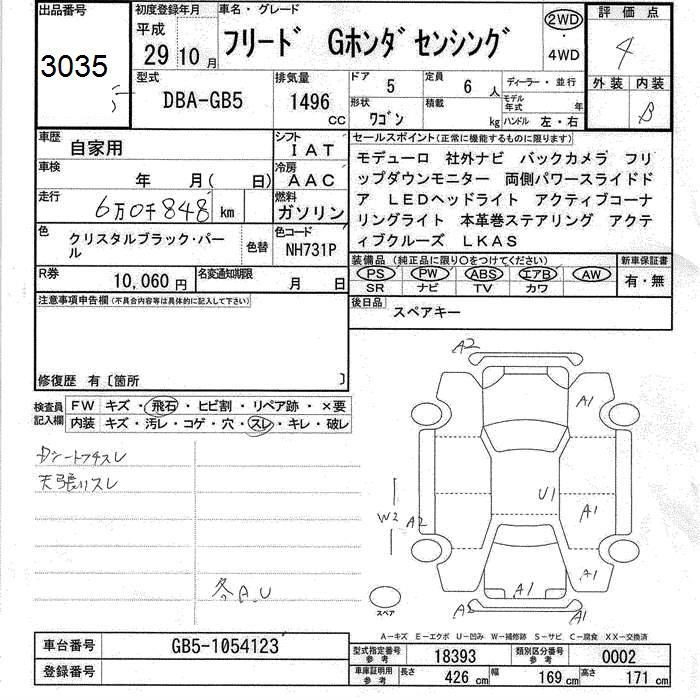 出品番号
3035
初度登録年月
平成
29 10 月
車名・グレード
フリード Gホンダセンシング
2WD
・
4WD
評価点
4
外装 内装
B
型式
DBA-GB5
排気量
1496
CC
ドア 5
定員 6 人
ディーラー・並行
形状 ワゴン
積載 kg
モデル年式 年
ハンドル 左・右
車歴 自家用
シフト IAT
車検 年 月( 日)
冷房 AAC
走行 6万0千848 km
燃料 ガソリン
色 クリスタルブラック・パール
色替
色コード NH731P
R券 10,060円
名変通知期限 月 日
セールスポイント(正常に機能するものに限ります)
モデューロ 社外ナビ バックカメラ フリ
ップダウンモニター 両側パワースライドド
ア LEDヘッドライト アクティブコーナ
リングライト 本革巻ステアリング アクテ
ィブクルーズ LKAS
装備品(純正品に限り○をつけてください)
新車保証書
PS PW ABS エアB AW
SR ナビ TV カワ
有・無
後日品
スペアキー
注意事項申告欄(不具合内容等は具体的に記入して下さい)
修復歴 有〔箇所 〕
検査員記入欄
FW キズ・飛石・ヒビ割・リペア跡・×要
内装 キズ・汚レ・コゲ・穴・スレ・キレ・破レ
天張りスレ
冬A.U
A2
A1
U1
A1
W2 A2
A1
A1
A2
A1
スペア
A-キズ E-エクボ U-凹み W-補修跡 S-サビ C-腐食 XX-交換済
車台番号 GB5-1054123
登録番号
型式指定番号参考 18393
類別区分番号参考 0002
車庫証明用参考 長さ 426 cm 幅 169 cm 高さ 171 cm